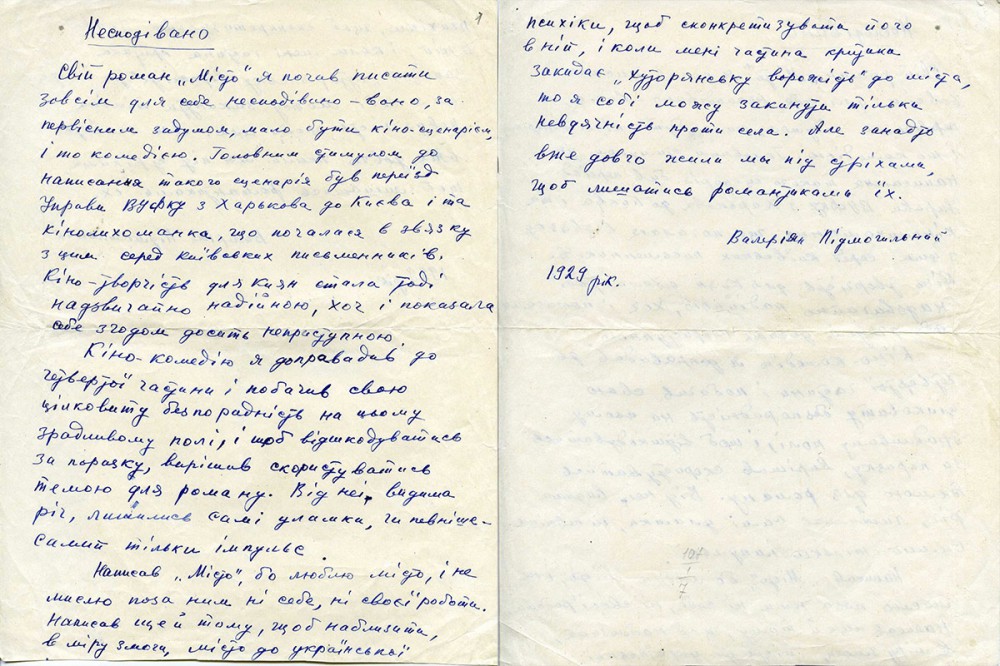 1
Несподівано
Свій роман „Місто" я почав писати
зовсім для себе несподівано – воно, за
первісним задумом, мало бути кіно-сценарієм,
і то комедією. Головним стимулом до
написання такого сценарія був переїзд
Управи ВУФКУ з Харькова до Києва і та
кінолихоманка, що почалася в звязку
з цим серед київських письменників.
Кіно-творчість для киян стала тоді
надзвичайно надійною, хоч і показала
себе згодом досить неприступною.
Кіно-комедію я доправадив до
четвертої частини і побачив свою
цілковиту безпорадність на цьому
зрадливому полі, і щоб відшкодуватись
за поразку, вирішив скористуватись
темою для роману. Від неї, видима
річ, лишились самі уламки, чи певніше –
самий тільки імпульс.
Написав „Місто", бо люблю місто, і не
мислю поза ним ні себе, ні своєї роботи.
Написав ще й тому, щоб наблизити,
в міру змоги, місто до української
психіки, щоб сконкретизувати його
в ній, і коли мені частина критики
закидає „хуторянську ворожість" до міста,
то я собі можу закинути тільки
невдячність проти села. Але занадто
вже довго жили ми під стріхами,
щоб лишатись романтиками їх.
Валеріян Підмогильний
1929 рік.